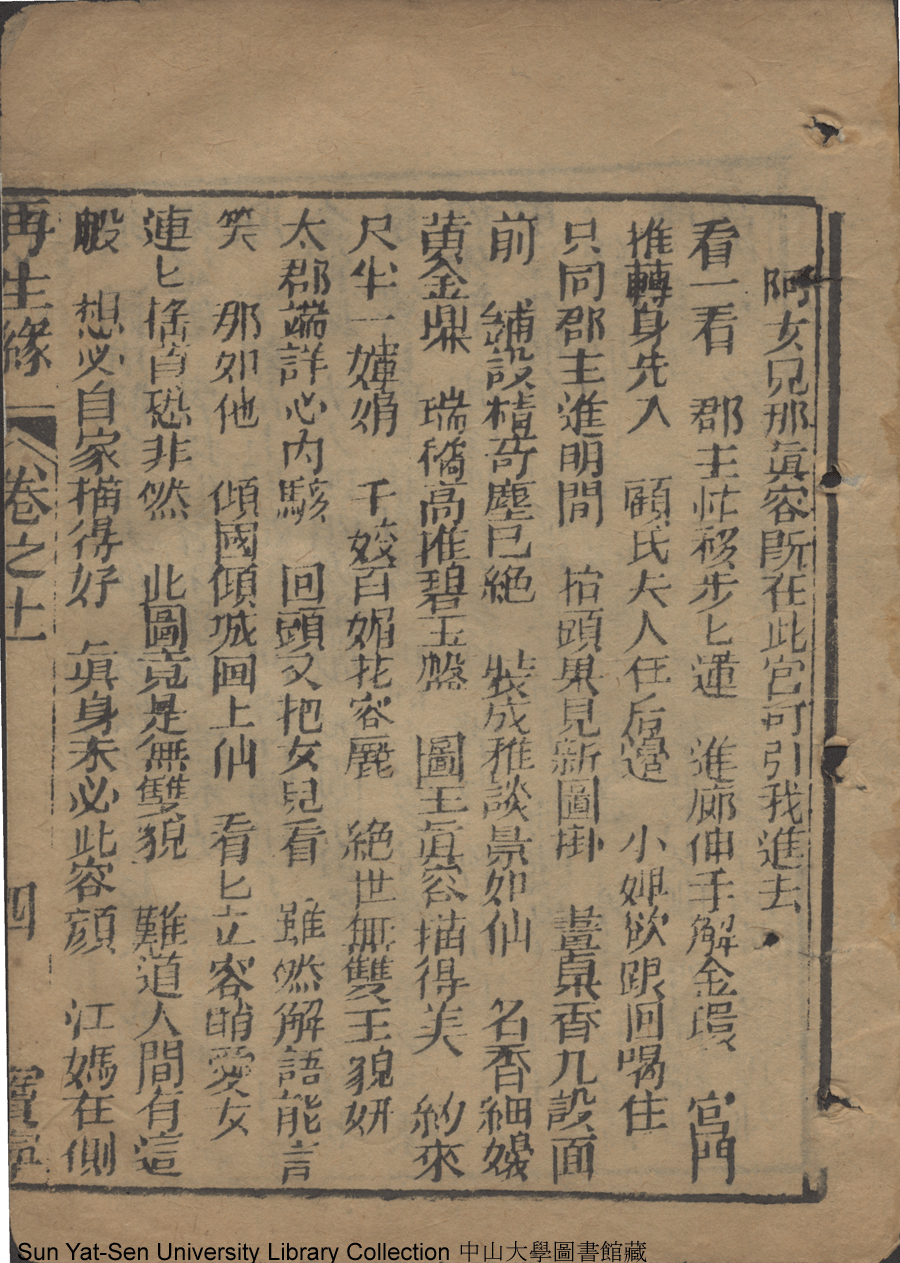 阿女兒那眞容所在此宮可引我進去
看一看　郡主忙移步匕蓮　進廊伸手解金環　宮門
推轉身先入　顧氏夫人在后邊　小婢欲跟回喝住
只同郡主進明間　抬頭果見新圖掛　畫桌香几設面
前　鋪設精奇塵已絶　裝成雅談景如仙　名香細嬝
黃金鼎　瑞橘高堆碧玉盤　圖王眞容描得美　約來
尺半一嬋娟　千姣百媚花容麗　絶世無雙玉貌妍
太郡端詳心内駭　回頭又把女兒看　雖然解語能言
笑　那如他　傾國傾城画上仙　看匕立容睄愛女
連匕搖首恐非然　此圖竟是無雙貌　難道人間有這
般　想必自家描得好　眞身未必此容顔　江媽在側
再生緣　卷之十　四　寶寧
Sun Yat-Sen University Library Collection 中山大學圖書館藏